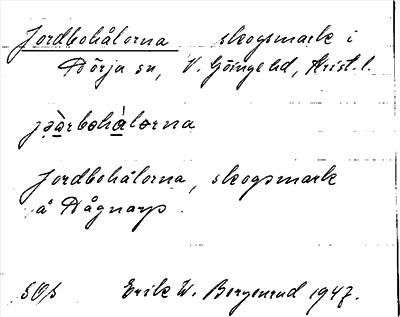 Jordbohålorna skogsmark i
Dörja sn, V. Göinge hd, Krist. l.
Jordbohålorna, skogsmark
å Dågnarp.
SOs Erik W. Bergenrud 1947.